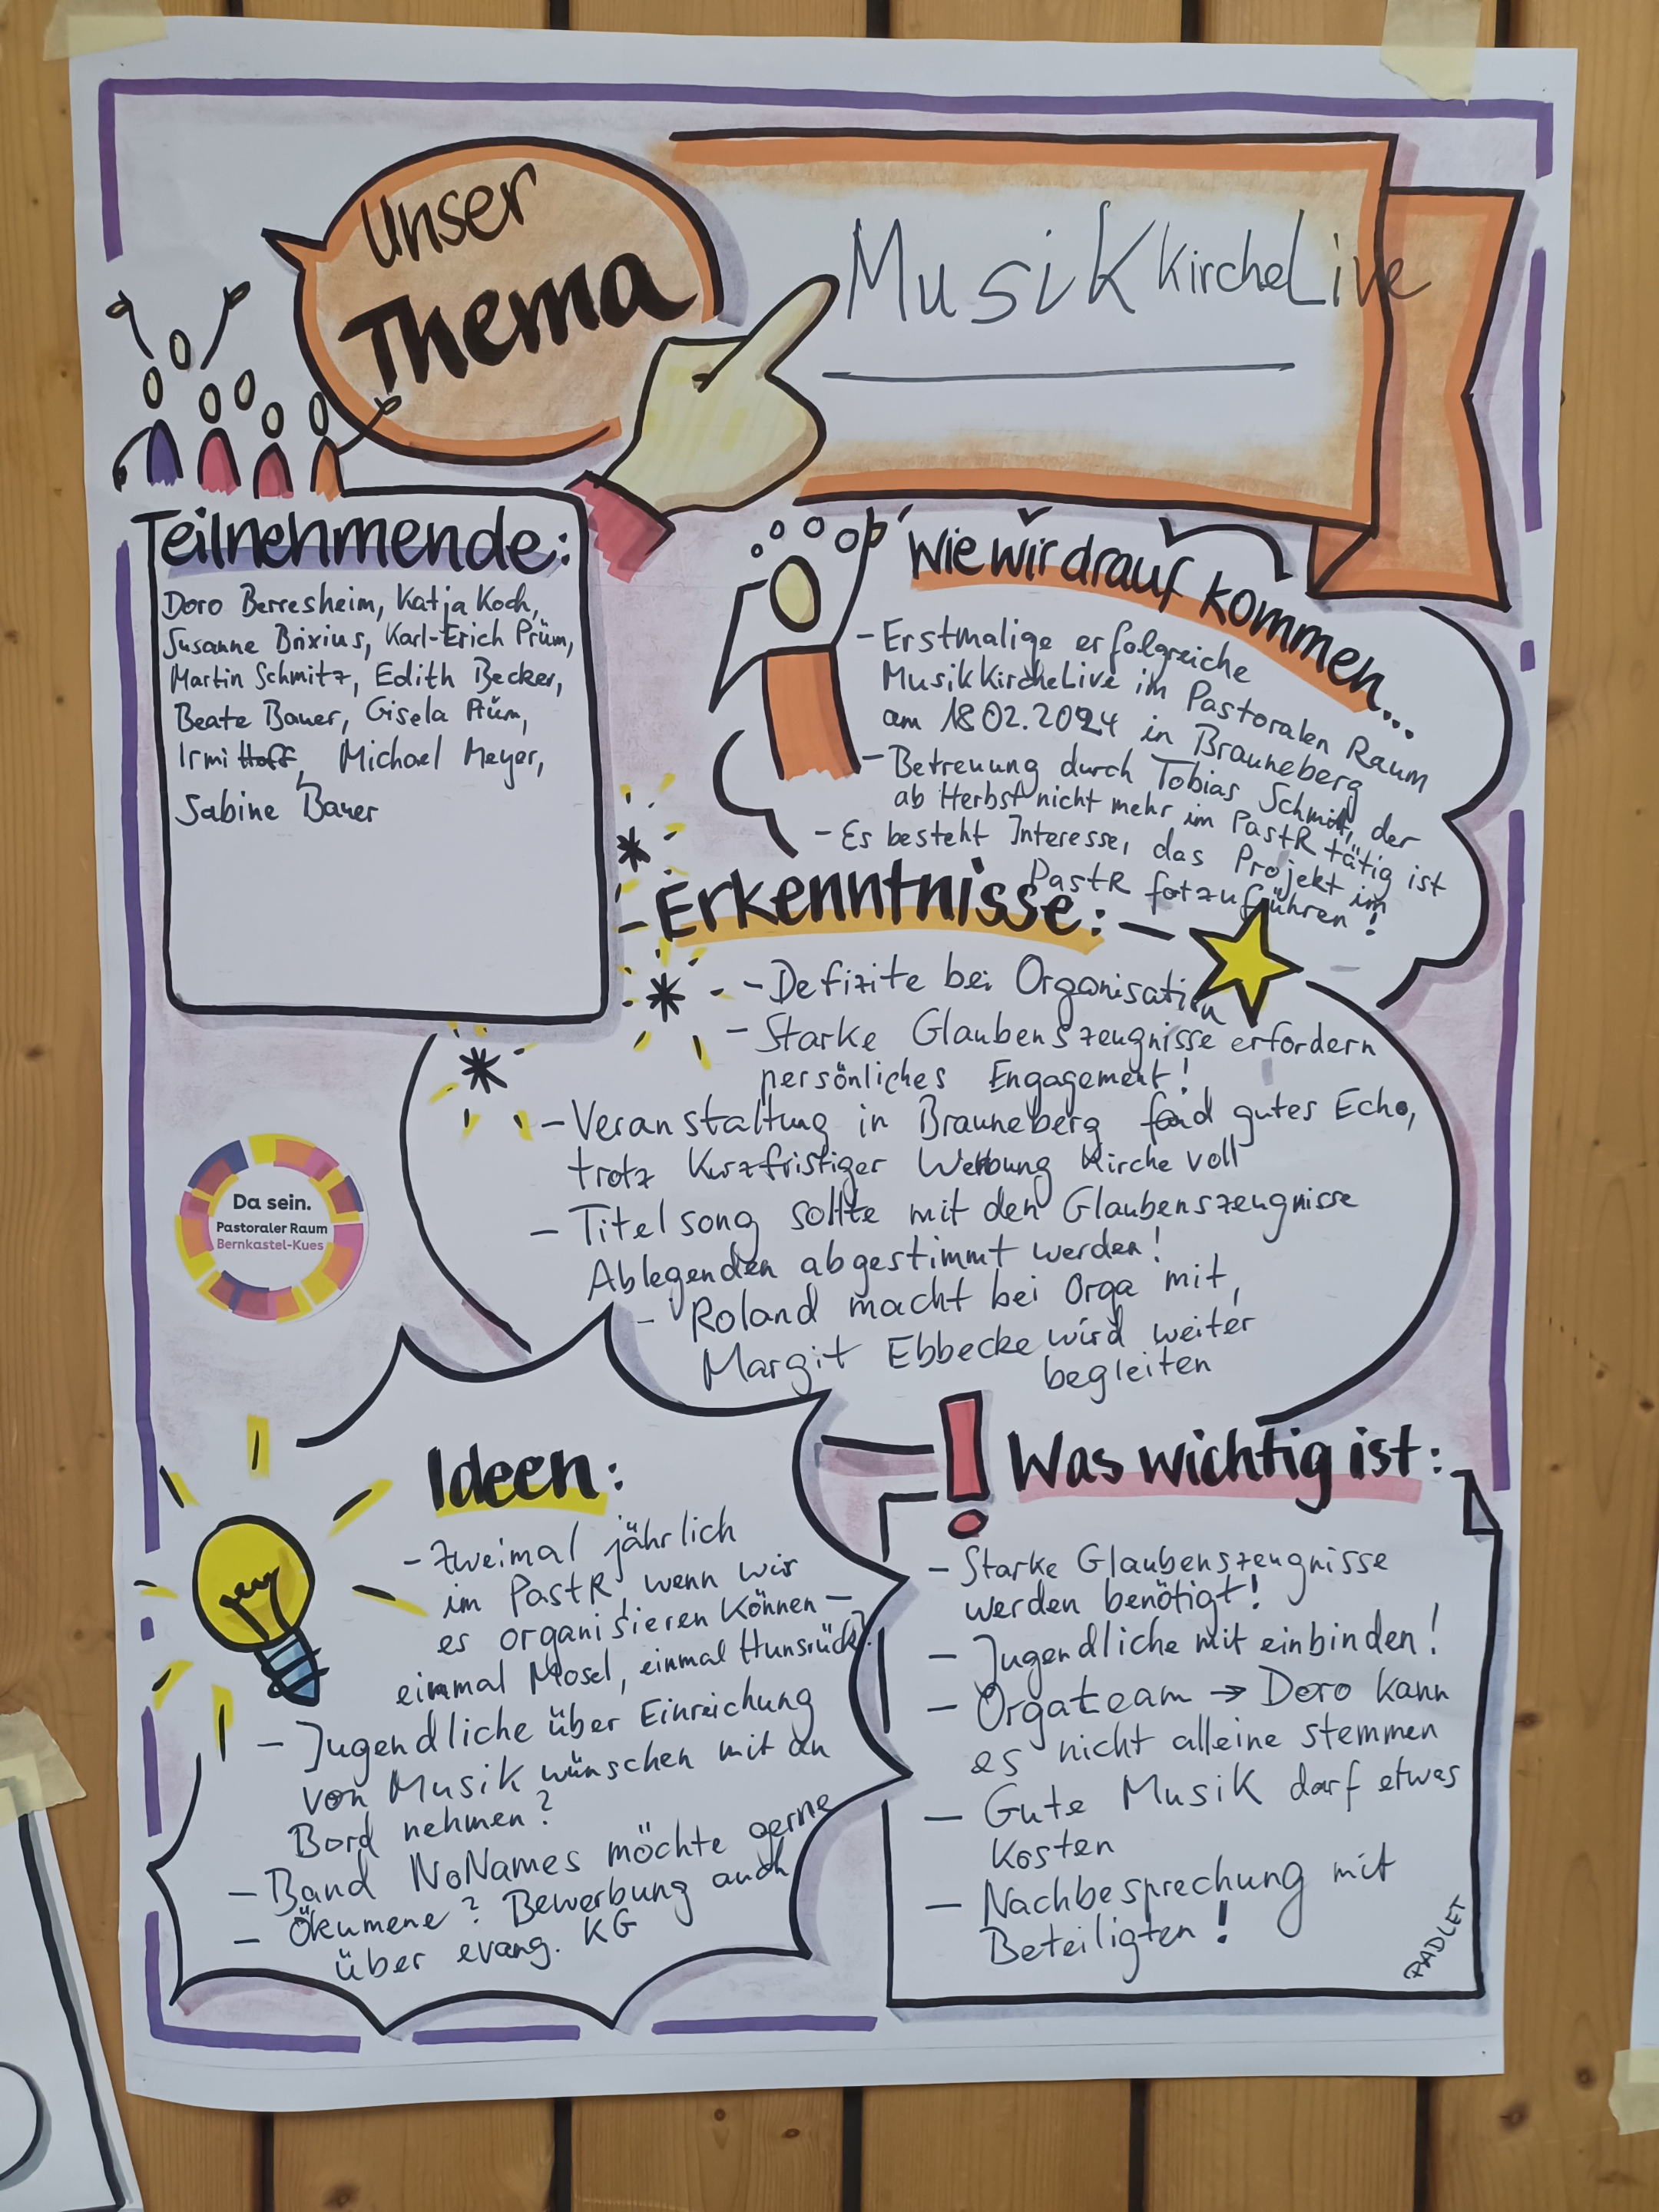 Unser
Thema
MusikKircheLive
Teilnehmende:
Doro Berresheim, Katja Koch,
Susanne Brixius, Karl-Erich Prüm,
Martin Schmitz, Edith Becker,
Beate Bauer, Gisela Prüm,
Irmi Hoff, Michael Meyer,
Sabine Bauer
Wie wir drauf kommen...
- Erstmalige erfolgreiche
MusikKircheLive im Pastoralen Raum
am 18.02.2024 in Brauneberg
- Betreuung durch Tobias Schmitt, der
ab Herbst nicht mehr im PastR tätig ist
- Es besteht Interesse, das Projekt im
PastR fotzuführen!
Erkenntnisse:
- Defizite bei Organisation
- Starke Glaubenszeugnisse erfordern
persönliches Engagement!
- Veranstaltung in Brauneberg fand gutes Echo,
trotz kurzfristiger Werbung Kirche voll
- Titelsong sollte mit den Glaubenszeugnisse
Ablegenden abgestimmt werden!
- Roland macht bei Orga mit,
Margit Ebbecke wird weiter
begleiten
Da sein.
Pastoraler Raum
Bernkastel-Kues
Ideen:
- Zweimal jährlich
im PastR, wenn wir
es organisieren können –
einmal Mosel, einmal Hunsrück?
- Jugendliche über Einreichung
von Musikwünschen mit an
Bord nehmen?
- Band NoNames möchte gerne
- Ökumene? Bewerbung auch
über evang. KG
Was wichtig ist:
- Starke Glaubenszeugnisse
werden benötigt!
- Jugendliche mit einbinden!
- Orgateam → Doro kann
es nicht alleine stemmen
- Gute Musik darf etwas
kosten
- Nachbesprechung mit
Beteiligten!
PADLET